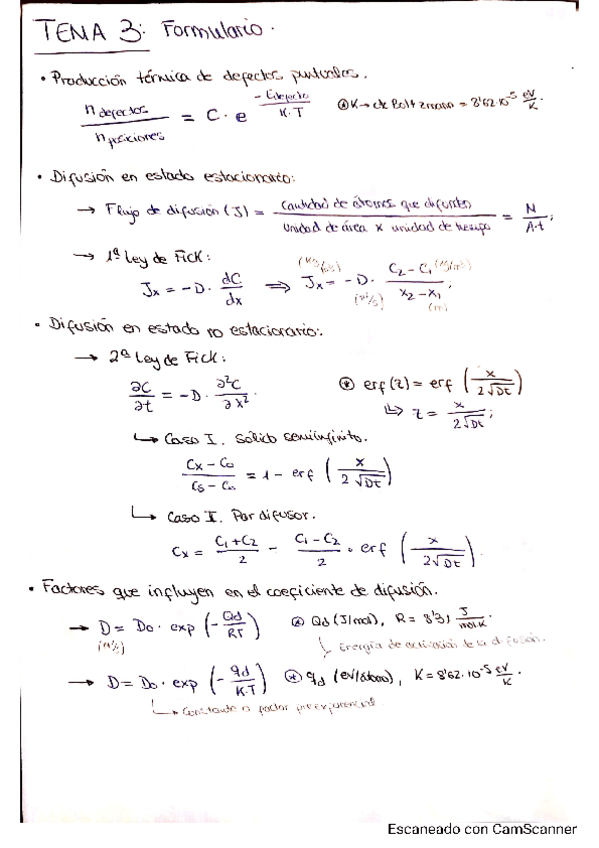 TEMA 3: Formulario.
• Producción térmica de defectos puntuales.
n defectos / n posiciones = C · e^(-E defecto / K·T) ⊛ K → cte Boltzmann = 8'62·10^-5 eV/K.
• Difusión en estado estacionario:
→ Flujo de difusión (J) = Cantidad de átomos que difunden / Unidad de área x unidad de tiempo = N / A·t ;
→ 1ª Ley de Fick:
Jx = -D · dC/dx ⟹ Jx = -D · (C2 - C1) / (x2 - x1) ;
(m)
• Difusión en estado no estacionario:
→ 2ª Ley de Fick:
∂C/∂t = -D · ∂²C/∂x² . ⊛ erf(z) = erf (x / 2√Dt)
↳ z = x / 2√Dt ;
↳ Caso I. Sólido semiinfinito.
(Cx - Co) / (Cs - Co) = 1 - erf (x / 2√Dt)
↳ Caso I. Par difusor.
Cx = (C1 + C2) / 2 - (C1 - C2) / 2 · erf (x / 2√Dt) .
• Factores que influyen en el coeficiente de difusión.
→ D = Do · exp (- Qd / RT) ⊛ Qd (J/mol), R = 8'31 J / mol·K .
(m²/s) ↳ Energía de activación de la difusión.
→ D = Do · exp (- qd / K·T) ⊛ qd (eV/átomo), K = 8'62·10^-5 eV/K .
↳ Constante o factor preexponencial.
Escaneado con CamScanner